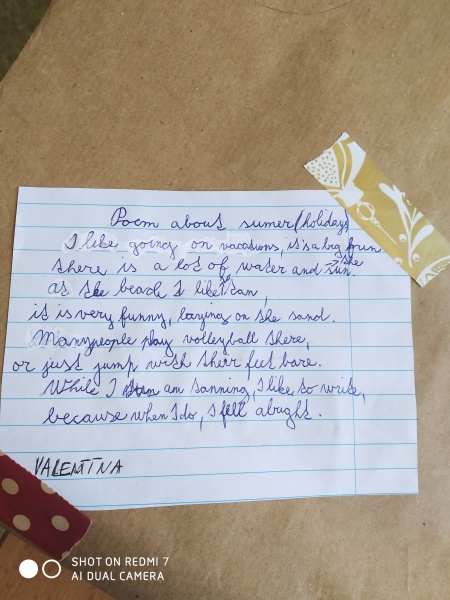 Poem about sumer/holidays
I like going on vacations, it's a big frun
there is a lot of water and the sun.
at the beach I like to tan,
it is very funny, laying on the sand.
Many people play volleyball there,
or just jump with their feet bare.
While I am tanning, I like to write,
because when I do, I fell alright.
VALENTINA
SHOT ON REDMI 7
AI DUAL CAMERA